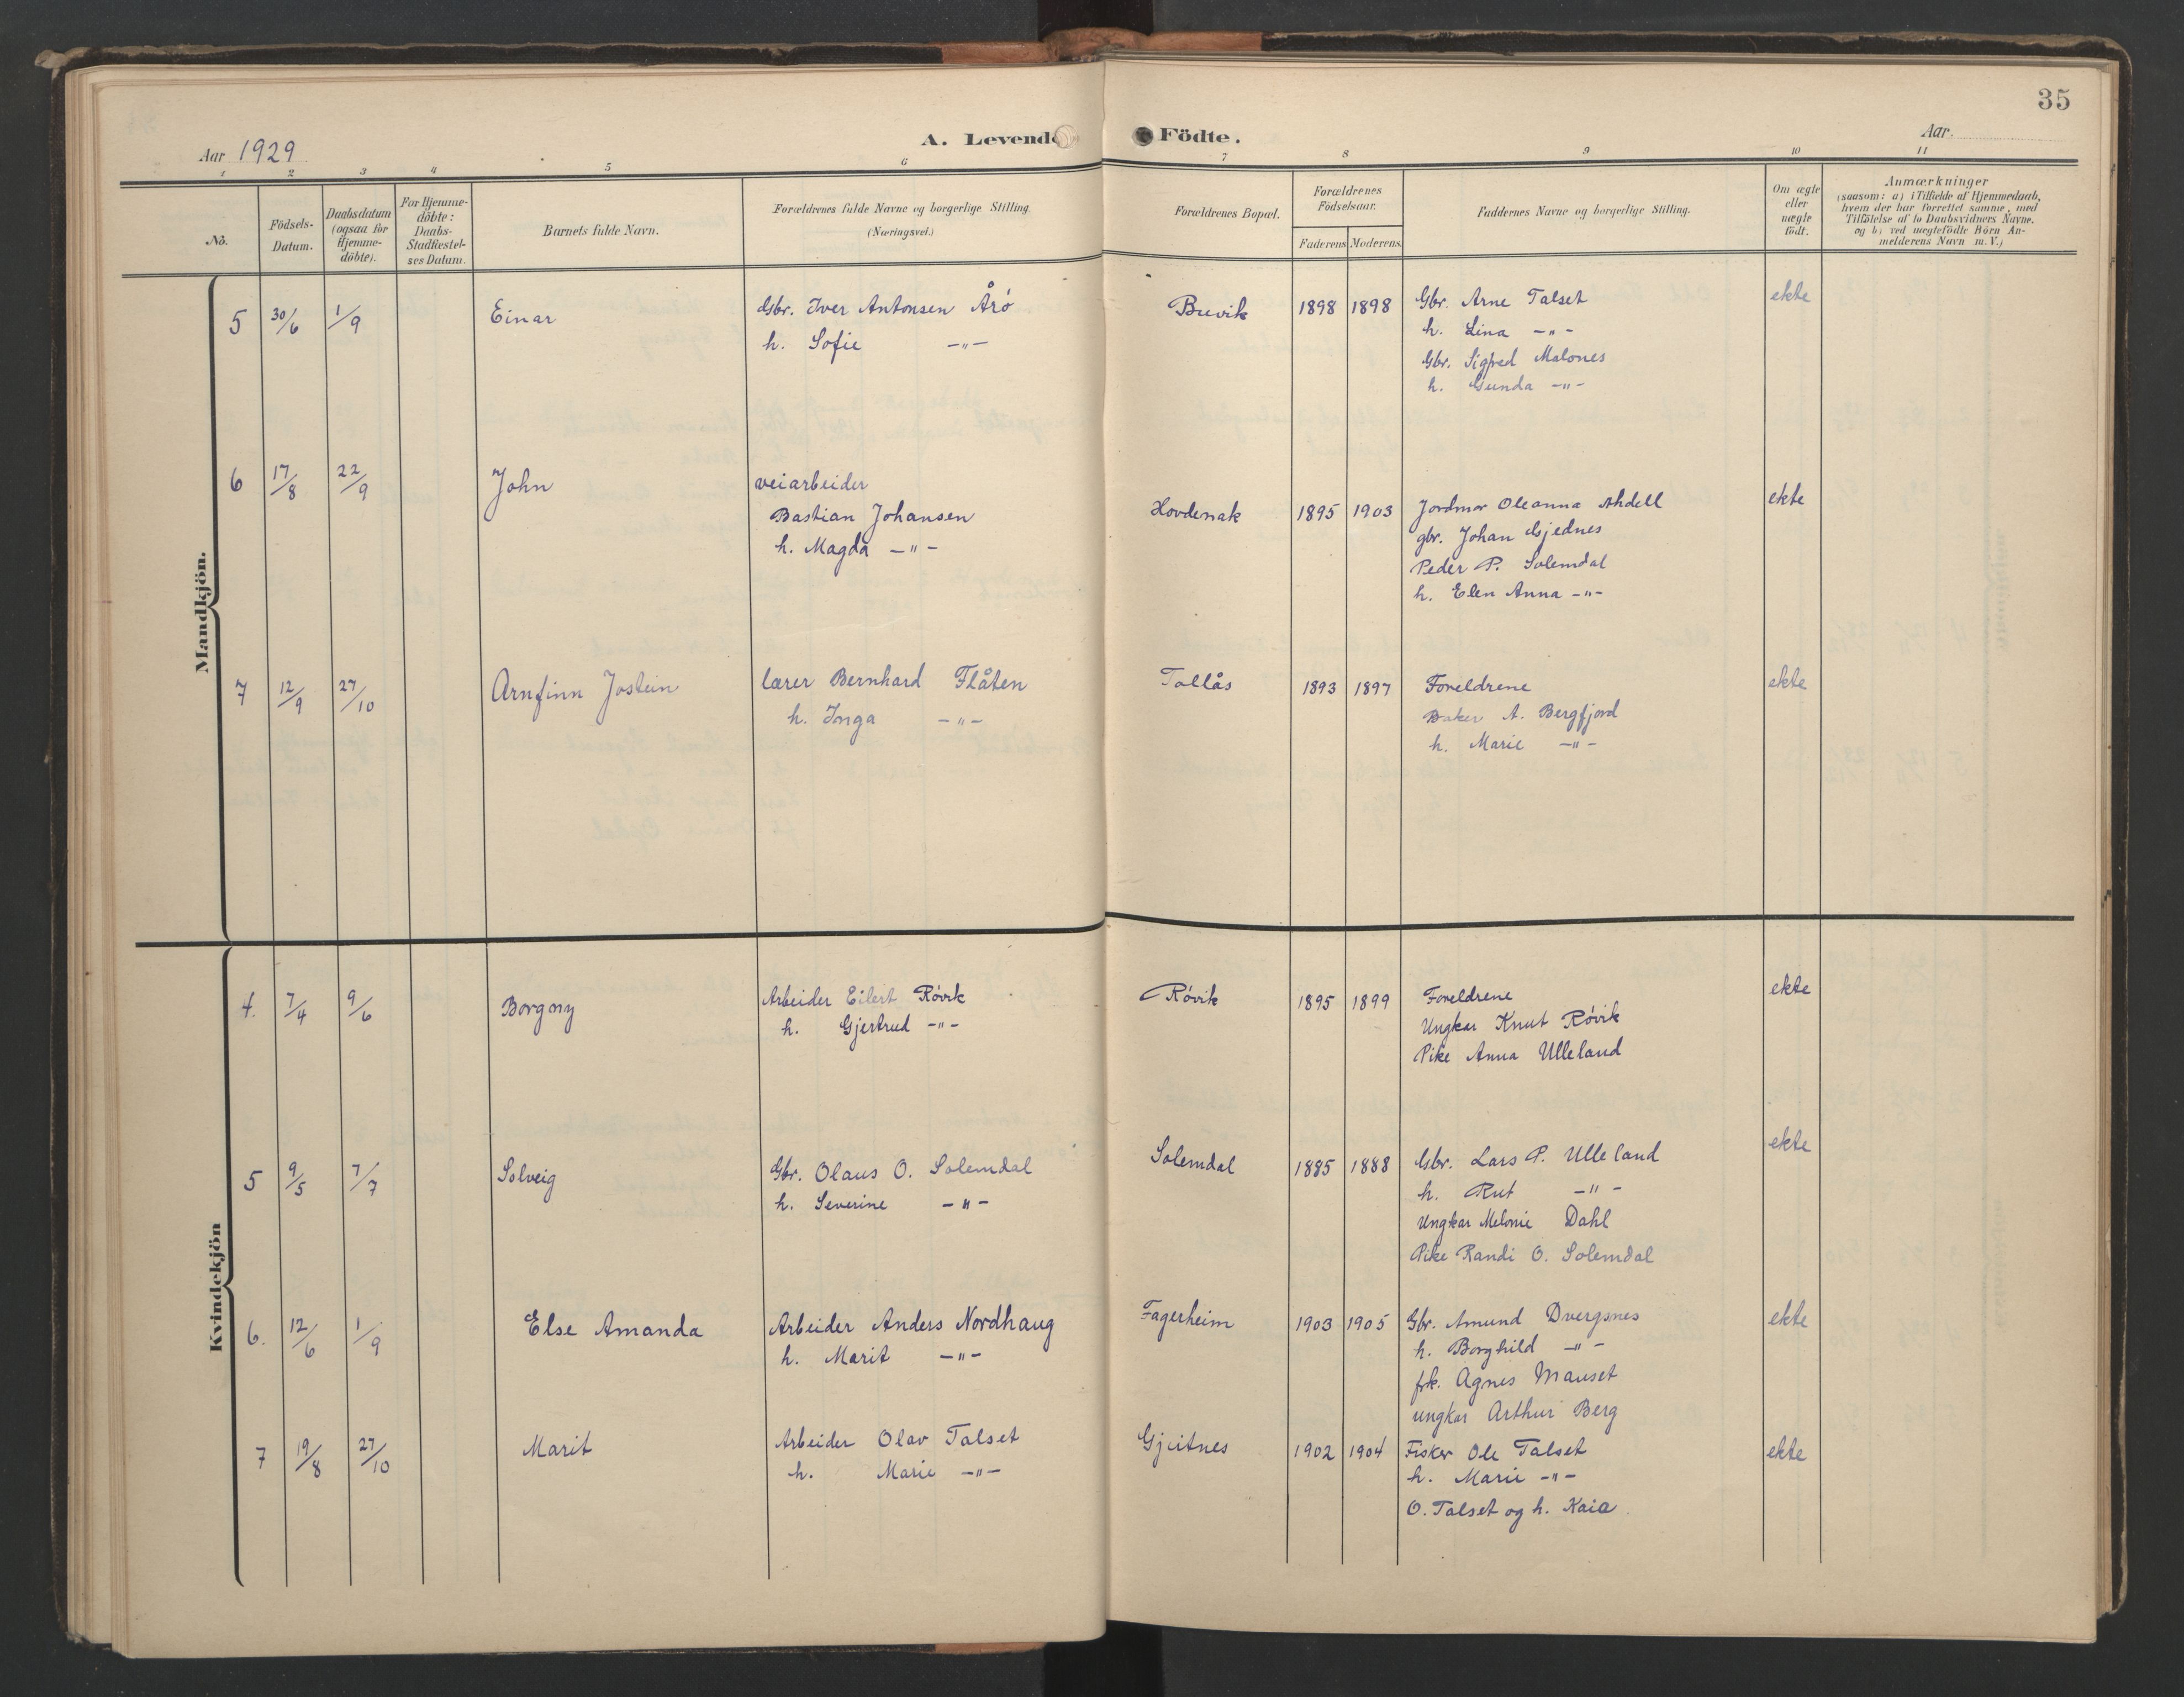 35
Aar 1929
A. Levende Födte.
Aar
1 2 3 4 5 6 7 8 9 10 11
No.
Födsels-
Datum.
Daabsdatum
(ogsaa for
Hjemme-
döbte).
For Hjemme-
döbte:
Daabs-
Stadfæstel-
ses Datum.
Barnets fulde Navn.
Forældrenes fulde Navne og borgerlige Stilling.
(Næringsvei.)
Forældrenes Bopæl.
Forældrenes
Födselsaar.
Faderens Moderens.
Faddernes Navne og borgerlige Stilling.
Om ægte
eller
uægte
födt.
Anmærkninger
(saasom: a) i Tilfælde af Hjemmedaab,
hvem der har forrettet samme, med
Tilföielse af to Daabsvidners Navne.
og b) ved uægtefödte Börn An-
melderens Navn m. V.)
Mandkjön.
5 30/6 1/9 Einar Gbr. Iver Antonsen Årö Buvik 1898 1898 Gbr. Arne Talset ekte
h. Sofie -"- h. Lina -"-
Gbr. Sigfred Malones
h. Gunda -"-
6 17/8 22/9 John veiarbeider
Bastian Johansen Hovdenak 1895 1903 Jordmor Oleanna ekte
h. Magda -"- gbr. Johan Gjednes
Peder P. Solemdal
h. Elen Anna -"-
7 12/9 27/10 Arnfinn Jostein lærer Bernhard Flåten Tollås 1893 1897 Foreldrene ekte
h. Inga -"- Baker A. Bergfjord
h. Marie -"-
Kvindekjön
4. 7/4 9/6 Borgny Arbeider Eilert Rövik Rövik 1895 1899 Foreldrene ekte
h. Gjertrud -"- Ungkar Knut Rövik
Pike Anna Ulleland
5 9/5 7/7 Solveig Gbr. Olaus O. Solemdal Solemdal 1885 1888 Gbr. Lars P. Ulleland ekte
h. Severine -"- h. Rut -"-
Ungkar Melonie Dahl
Pike Randi O. Solemdal
6. 12/6 1/9 Else Amanda Arbeider Anders Nordhaug Fagerheim 1903 1905 Gbr. Amund Dvergsnes ekte
h. Marit -"- h. Borghild -"-
frk. Agnes Mauset
ungkar Arthur Berg
7 19/8 27/10 Marit Arbeider Olav Talset Gjeitnes 1902 1904 Fisker Ole Talset ekte
h. Marie -"- h. Marie -"-
O. Talset og h. Kaia.